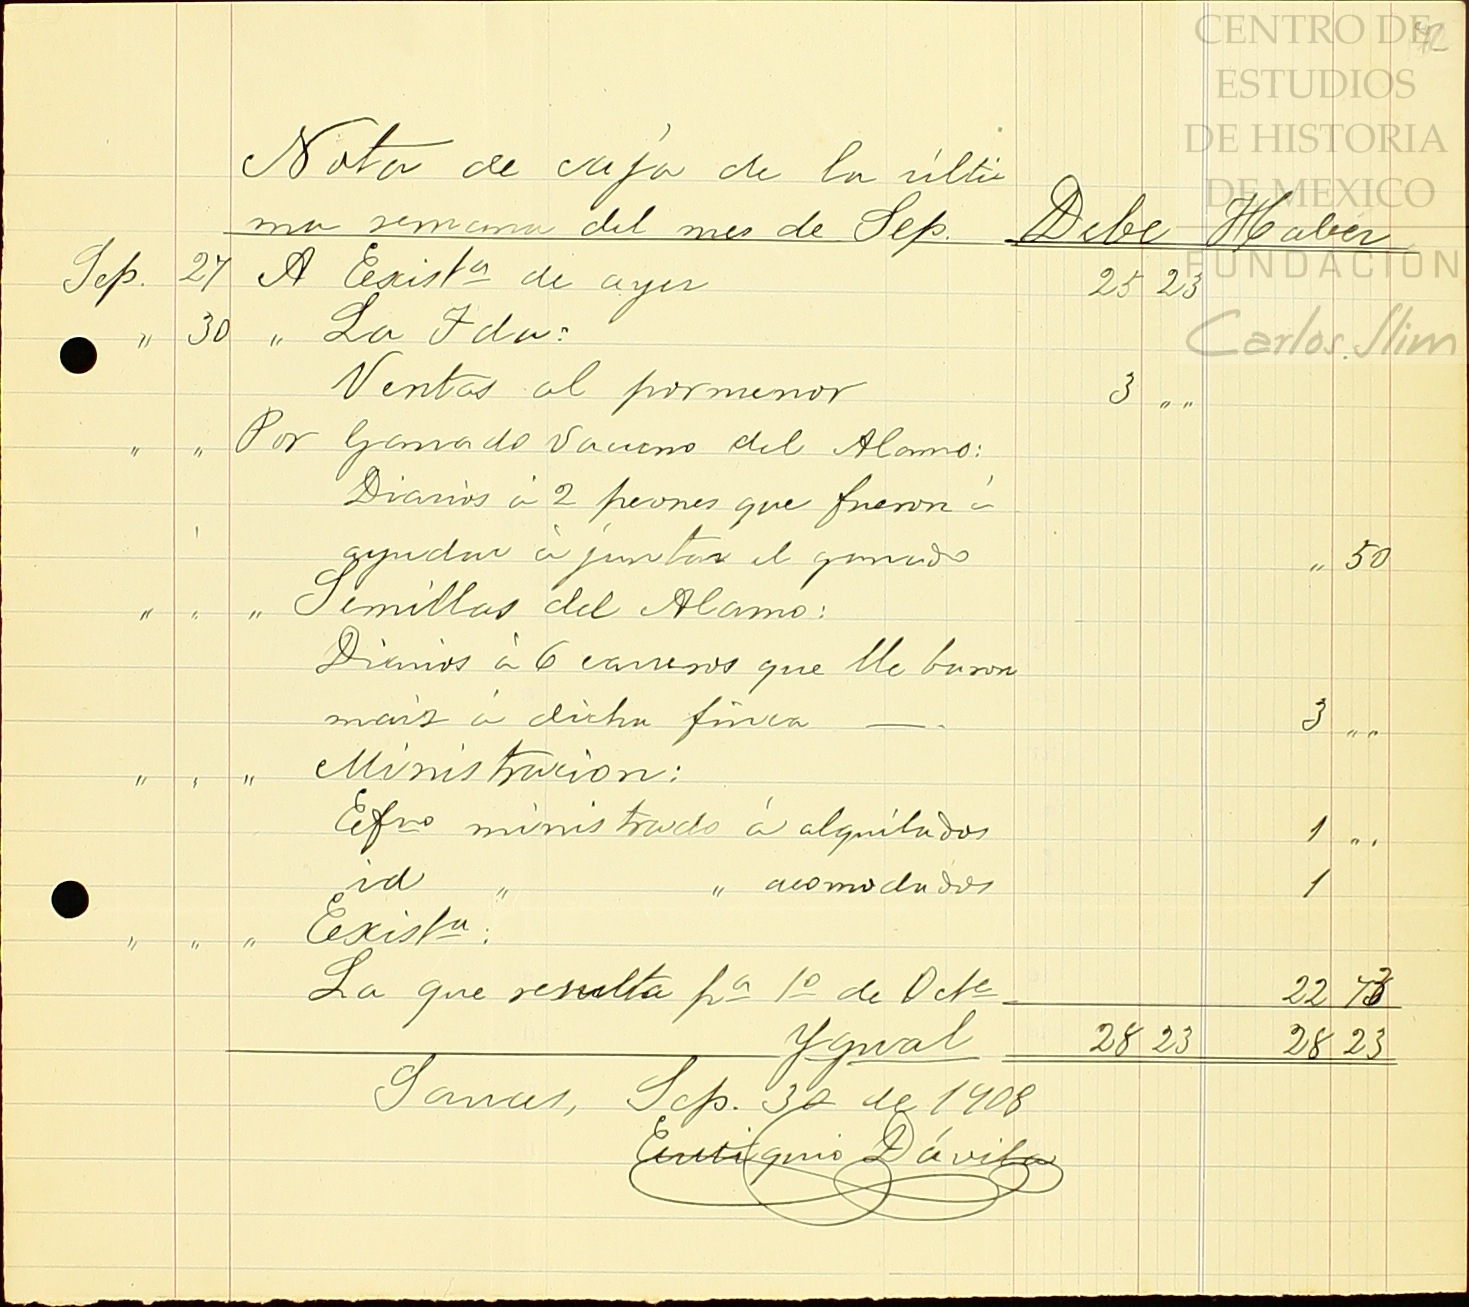 CENTRO DE
ESTUDIOS
DE HISTORIA
DE MEXICO
FUNDACIÓN
Carlos Slim
Nota de caja de la últi
ma semana del mes de Sep. Debe Haber
Sep. 27 A Exist.ª de ayer 25 23
" 30 " La Fda:
Ventas al pormenor 3 ""
" " Por Ganado Vacuno del Alamo:
Diarios á 2 peones que fueron á
ayudar á juntar el ganado " 50
" " " Semillas del Alamo:
Diarios á 6 carreros que lle baron
maiz á dicha finca — 3 ""
" " " Ministracion:
Efvo ministrado á alquilados 1 ""
id " " acomodados 1
" " " Existª:
La que resulta pª 1º de Octe 22 73
Ygual 28 23 28 23
Sep. 30 de 1908
Eutiquio Dávila